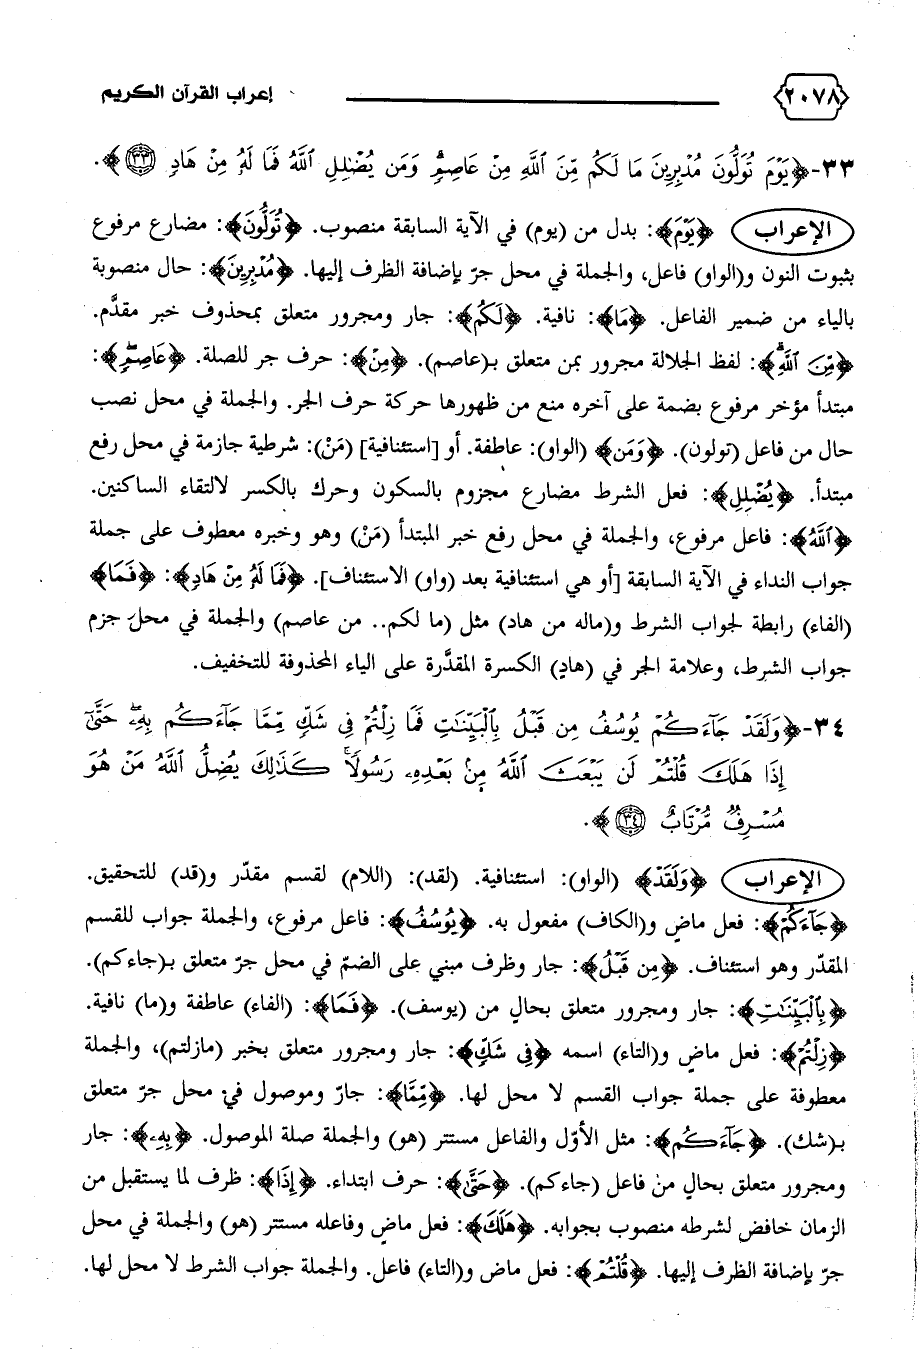 ٢٠٧٨ إعراب القرآن الكريم
٣٣-﴿يَوْمَ تُوَلُّونَ مُدْبِرِينَ مَا لَكُم مِّنَ ٱللَّهِ مِنْ عَاصِمٍۗ وَمَن يُضْلِلِ ٱللَّهُ فَمَا لَهُۥ مِنْ هَادٍ ﴿٣٣﴾﴾.
الإعراب ﴿يَوْمَ﴾: بدل من (يوم) في الآية السابقة منصوب. ﴿تُوَلُّونَ﴾: مضارع مرفوع
بثبوت النون و(الواو) فاعل، والجملة في محل جرّ بإضافة الظرف إليها. ﴿مُدْبِرِينَ﴾: حال منصوبة
بالياء من ضمير الفاعل. ﴿مَا﴾: نافية. ﴿لَكُم﴾: جار ومجرور متعلق بمحذوف خبر مقدَّم.
﴿مِّنَ ٱللَّهِ﴾: لفظ الجلالة مجرور بمن متعلق بـ(عاصم). ﴿مِنْ﴾: حرف جر للصلة. ﴿عَاصِمٍۗ﴾:
مبتدأ مؤخر مرفوع بضمة على آخره منع من ظهورها حركة حرف الجر. والجملة في محل نصب
حال من فاعل (تولون). ﴿وَمَن﴾ (الواو): عاطفة. أو [استئنافية] (مَنْ): شرطية جازمة في محل رفع
مبتدأ. ﴿يُضْلِلِ﴾: فعل الشرط مضارع مجزوم بالسكون وحرك بالكسر لالتقاء الساكنين.
﴿ٱللَّهُ﴾: فاعل مرفوع، والجملة في محل رفع خبر المبتدأ (مَنْ) وهو وخبره معطوف على جملة
جواب النداء في الآية السابقة [أو هي استئنافية بعد (واو) الاستئناف]. ﴿فَمَا لَهُۥ مِنْ هَادٍ﴾: ﴿فَمَا﴾
(الفاء) رابطة لجواب الشرط و(ماله من هاد) مثل (ما لكم.. من عاصم) والجملة في محل جزم
جواب الشرط، وعلامة الجر في (هادٍ) الكسرة المقدَّرة على الياء المحذوفة للتخفيف.
٣٤-﴿وَلَقَدْ جَآءَكُمْ يُوسُفُ مِن قَبْلُ بِٱلْبَيِّنَٰتِ فَمَا زِلْتُمْ فِى شَكٍّ مِّمَّا جَآءَكُم بِهِۦۖ حَتَّىٰٓ
إِذَا هَلَكَ قُلْتُمْ لَن يَبْعَثَ ٱللَّهُ مِنۢ بَعْدِهِۦ رَسُولًاۚ كَذَٰلِكَ يُضِلُّ ٱللَّهُ مَنْ هُوَ
مُسْرِفٌ مُّرْتَابٌ ﴿٣٤﴾﴾.
الإعراب ﴿وَلَقَدْ﴾ (الواو): استئنافية. (لقد): (اللام) لقسم مقدّر و(قد) للتحقيق.
﴿جَآءَكُمْ﴾: فعل ماضٍ و(الكاف) مفعول به. ﴿يُوسُفُ﴾: فاعل مرفوع، والجملة جواب للقسم
المقدّر وهو استئناف. ﴿مِن قَبْلُ﴾: جار وظرف مبني على الضمّ في محل جرّ متعلق بـ(جاءكم).
﴿بِٱلْبَيِّنَٰتِ﴾: جار ومجرور متعلق بحالٍ من (يوسف). ﴿فَمَا﴾: (الفاء) عاطفة و(ما) نافية.
﴿زِلْتُمْ﴾: فعل ماضٍ و(التاء) اسمه ﴿فِى شَكٍّ﴾: جار ومجرور متعلق بخبر (مازلتم)، والجملة
معطوفة على جملة جواب القسم لا محل لها. ﴿مِّمَّا﴾: جارّ وموصول في محل جرّ متعلق
بـ(شك). ﴿جَآءَكُم﴾: مثل الأوّل والفاعل مستتر (هو) والجملة صلة الموصول. ﴿بِهِۦ﴾: جار
ومجرور متعلق بحالٍ من فاعل (جاءكم). ﴿حَتَّىٰٓ﴾: حرف ابتداء. ﴿إِذَا﴾: ظرف لما يستقبل من
الزمان خافض لشرطه منصوب بجوابه. ﴿هَلَكَ﴾: فعل ماضٍ وفاعله مستتر (هو) والجملة في محل
جرّ بإضافة الظرف إليها. ﴿قُلْتُمْ﴾: فعل ماض و(التاء) فاعل. والجملة جواب الشرط لا محل لها.